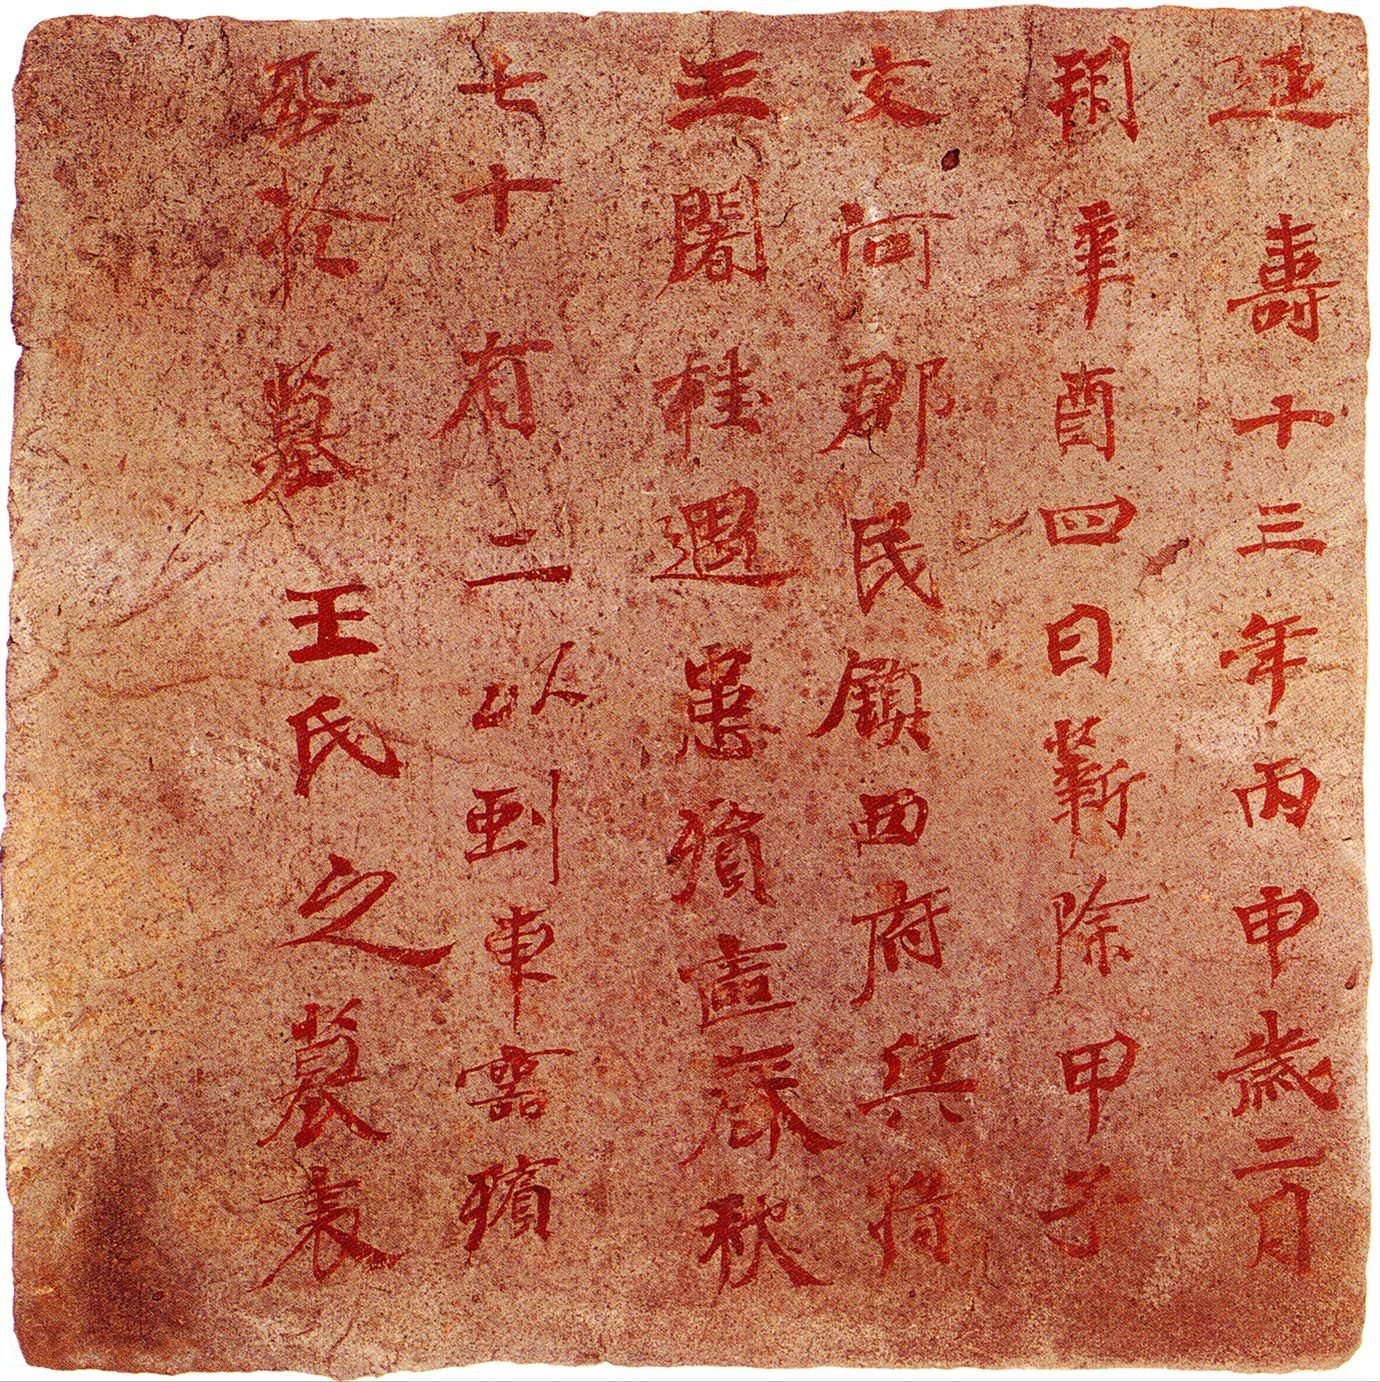 延壽十三年丙申歲二月
朔辛酉四日蔪除甲子
交河郡民鎮西府兵將
王闍桂遇患殞春秋
七十有二以到車靈殯
於墓 王氏之墓表